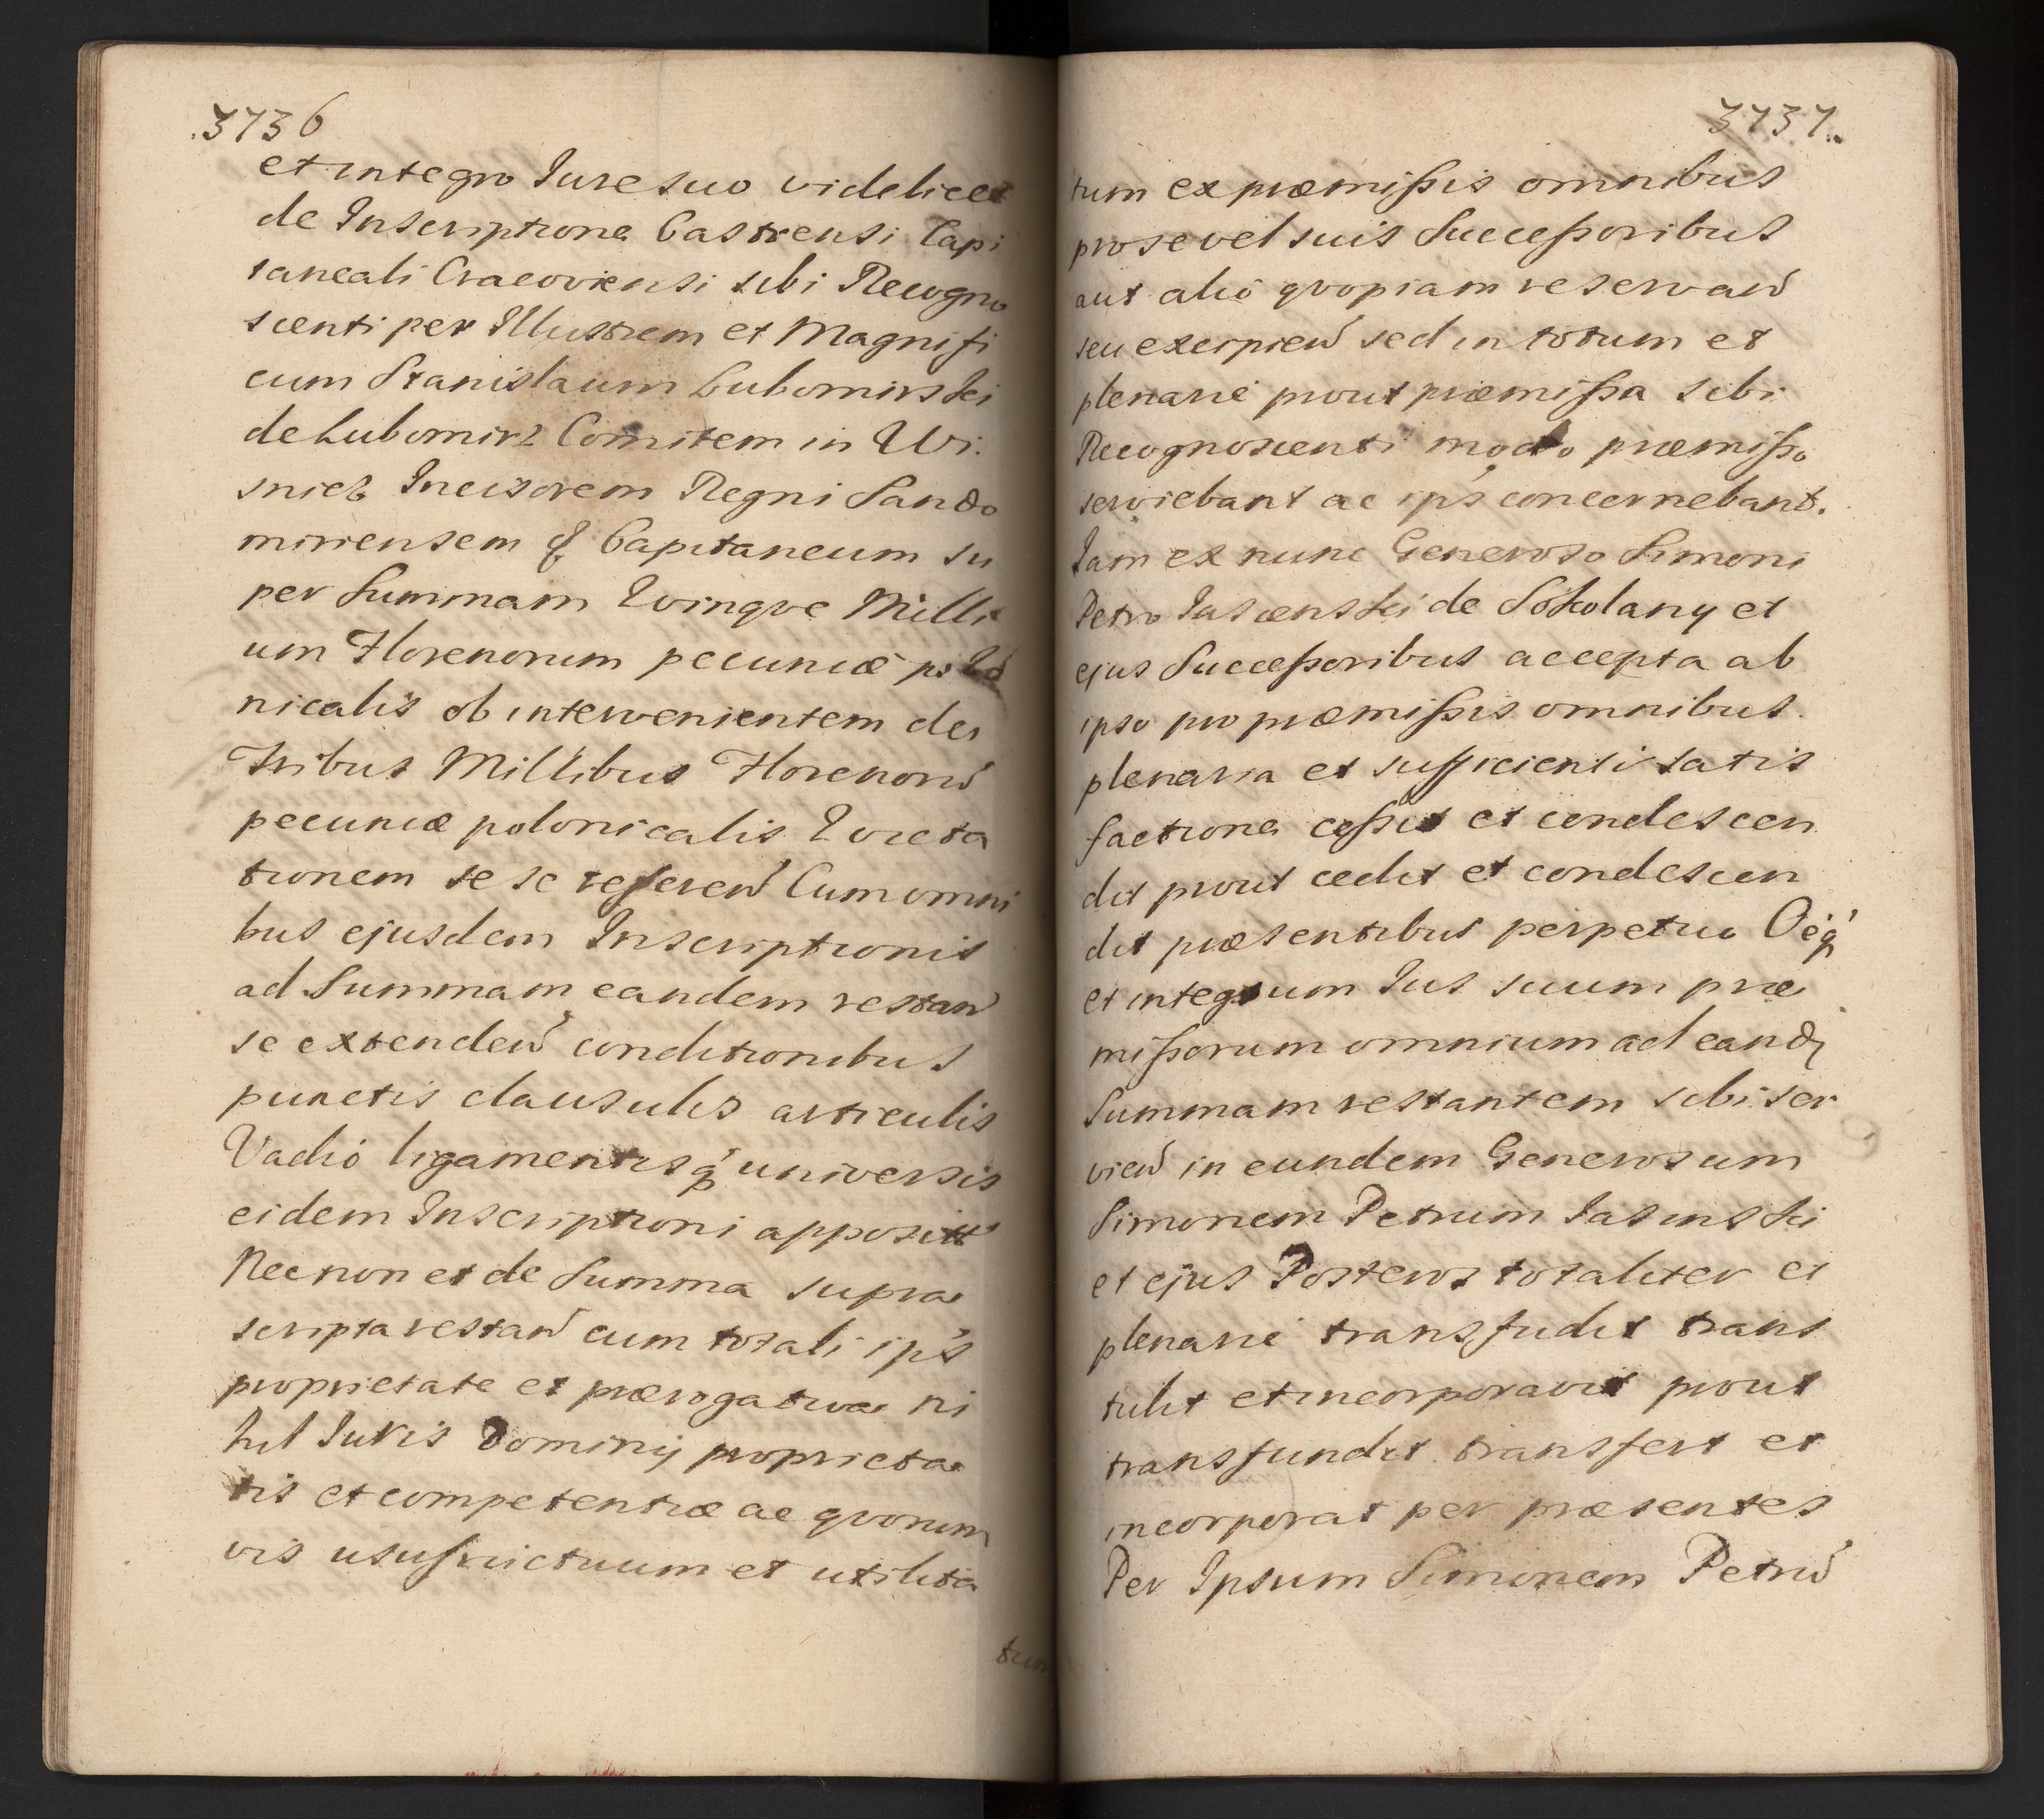 3736
et integro Jure suo videlicet
de Inscriptione Castrensi Capi
taneali Cracoviensi sibi Recogno
scenti per Illustrem et Magnifi
cum Stanislaum Lubomirski
de Lubomirz Comitem in Wi.
snicz Incisorem Regni Sando
miriensem q Capitaneum su
per Summam Qvinqve Milli
um Florenorum pecuniæ polo
nicalis ob intervenientem de
Tribus Millibus Florenorũ
pecuniæ polonicalis Qvieta
tionem se se refereñ Cum omni
bus ejusdem Inscriptionis
ad Summam eandem restañ
se extendeñ conditionibus
punctis clausulis articulis
Vadió ligamentisq́ universis
eidem Inscriptioni apposit
Necnon et de Summa supra
scripta restañ cum totali ip's
proprietate et prærogativa ni
hil Juris Dominij proprieta
tis et competentiæ ac qvorum
vis usufructuum et utilita
tum
3737.
tum ex præmißis omnibus
pro se vel suis Succeßoribus
aut alió qvopiam reservañ
seu excipieñ sed in totum et
plenarié prout præmißa sibi
Recognoscenti modo præmißo
serviebant ac ip's concernebant.
Jam ex nunc Generoso Simoni
Petro Jasienski de Sokolany et
ejus Succeßoribus accepta ab
ipso pro præmißis omnibus
plenaria et sufficienti satis
factione ceßit et condescen
dit prout cedit et condescen
dit præsentibus perpetuo Oéq́
et integrum Jus suum præ
mißorum omnium ad eandȝ
Summam restantem sibi ser
vieñ in eundem Generosum
Simonem Petrum Jasinski
et ejus Posteros totaliter et
plenarié transfudit trans
tulit et incorporavit prout
transfundit transfert et
incorporat per præsentes
Per Ipsum Simonem Petrũ